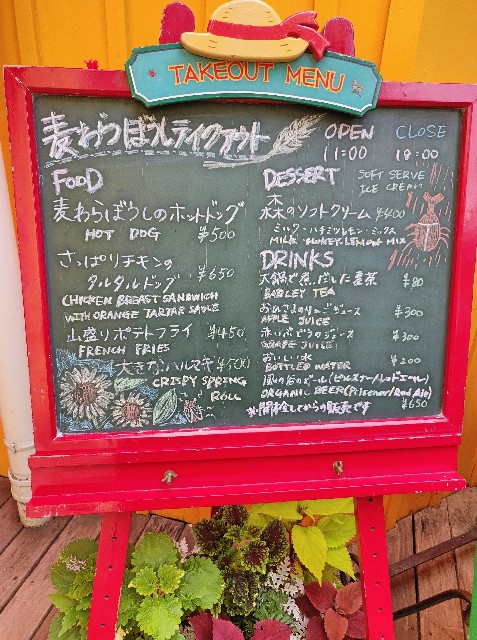 TAKEOUT MENU
麦わらぼうしテイクアウト
OPEN CLOSE
11:00 18:00
FOOD
麦わらぼうしのホットドッグ
HOT DOG ¥500
さっぱりチキンの
タルタルドッグ ¥650
CHICKEN BREAST SANDWICH
WITH ORANGE TARTAR SAUCE
山盛りポテトフライ ¥450
FRENCH FRIES
大きなハルマキ
CRISPY SPRING
ROLL
DESSERT SOFT SERVE
ICE CREAM
森のソフトクリーム ¥400
ミルク・ハチミツレモン・ミックス
MILK HONEY LEMON MIX
DRINKS
大鍋で煮だした麦茶 ¥80
BARLEY TEA
おひさまのりんごジュース ¥300
APPLE JUICE
赤いぶどうのジュース ¥300
GRAPE JUICE
おいしい水 ¥200
BOTTLED WATER
風の谷のビール(ピルスナー/レッドエール)
ORGANIC BEER (Pilsener/Red Ale)
¥650
してからの販売です